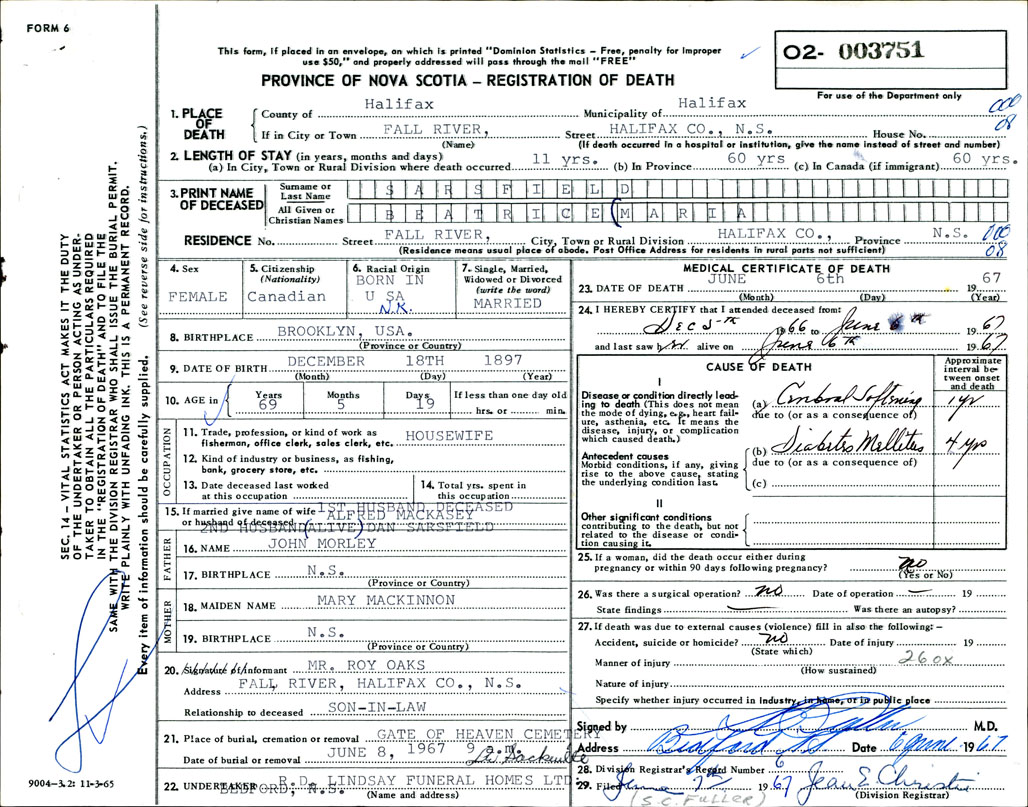 FORM 6
This form, if placed in an envelope, on which is printed "Dominion Statistics – Free, penalty for improper
use $50," and properly addressed will pass through the mail "FREE"
PROVINCE OF NOVA SCOTIA – REGISTRATION OF DEATH
02- 003751
For use of the Department only
000
08
1. PLACE OF DEATH
County of Halifax Municipality of Halifax
If in City or Town FALL RIVER, Street HALIFAX CO., N.S. House No.
(Name) (If death occurred in a hospital or institution, give the name instead of street and number)
2. LENGTH OF STAY (in years, months and days)
(a) In City, Town or Rural Division where death occurred 11 yrs. (b) In Province 60 yrs (c) In Canada (if immigrant) 60 yrs.
3. PRINT NAME OF DECEASED
Surname or Last Name SARSFIELD
All Given or Christian Names BEATRICE (MARIA
RESIDENCE No. Street FALL RIVER, City, Town or Rural Division HALIFAX CO., Province N.S. 000
08
(Residence means usual place of abode. Post Office Address for residents in rural parts not sufficient)
4. Sex FEMALE
5. Citizenship (Nationality) Canadian
6. Racial Origin BORN IN U SA N.K.
7. Single, Married, Widowed or Divorced (write the word) MARRIED
8. BIRTHPLACE BROOKLYN, USA.
(Province or Country)
9. DATE OF BIRTH DECEMBER 18TH 1897
(Month) (Day) (Year)
10. AGE in Years 69 Months 5 Days 19 If less than one day old hrs. or min.
OCCUPATION
11. Trade, profession, or kind of work as fisherman, office clerk, sales clerk, etc. HOUSEWIFE
12. Kind of industry or business, as fishing, bank, grocery store, etc.
13. Date deceased last worked at this occupation
14. Total yrs. spent in this occupation
15. If married give name of wife or husband of deceased 1ST HUSBAND DECEASED
ALFRED MACKASEY
2ND HUSBAND (ALIVE) DAN SARSFIELD
FATHER
16. NAME JOHN MORLEY
17. BIRTHPLACE N.S.
(Province or Country)
MOTHER
18. MAIDEN NAME MARY MACKINNON
19. BIRTHPLACE N.S.
(Province or Country)
20. Signature of informant MR. ROY OAKS
Address FALL RIVER, HALIFAX CO., N.S.
Relationship to deceased SON-IN-LAW
21. Place of burial, cremation or removal GATE OF HEAVEN CEMETERY
Date of burial or removal JUNE 8, 1967 9 a.m.
22. UNDERTAKER R.D. LINDSAY FUNERAL HOMES LTD
BEDFORD, N.S. (Name and address)
MEDICAL CERTIFICATE OF DEATH
23. DATE OF DEATH JUNE 6th 1967
(Month) (Day) (Year)
24. I HEREBY CERTIFY that I attended deceased from:
Dec 5th 1966 to June 6th 1967
and last saw her alive on June 6th 1967
CAUSE OF DEATH
Approximate interval between onset and death
I
Disease or condition directly leading to death (This does not mean the mode of dying, e.g., heart failure, asthenia, etc. It means the disease, injury, or complication which caused death.)
(a) Cerebral Softening 1 yr
due to (or as a consequence of)
Antecedent causes
Morbid conditions, if any, giving rise to the above cause, stating the underlying condition last.
(b) Diabetes Mellitus 4 yrs
due to (or as a consequence of)
(c)
II
Other significant conditions
contributing to the death, but not related to the disease or condition causing it.
25. If a woman, did the death occur either during pregnancy or within 90 days following pregnancy? no
(Yes or No)
26. Was there a surgical operation? no Date of operation — 19
State findings — Was there an autopsy?
27. If death was due to external causes (violence) fill in also the following: –
Accident, suicide or homicide? no Date of injury 19
(State which)
Manner of injury 260X
(How sustained)
Nature of injury
Specify whether injury occurred in industry, in home, or in public place
Signed by M.D.
Address Bedford NS Date 6 June 1967
28. Division Registrar's Record Number 6
29. Filed June 7th 1967 Jean E. Christie
(S.C. Fuller) (Division Registrar)
SEC. 14 – VITAL STATISTICS ACT MAKES IT THE DUTY
OF THE UNDERTAKER OR PERSON ACTING AS UNDER-
TAKER TO OBTAIN ALL THE PARTICULARS REQUIRED
IN THE "REGISTRATION OF DEATH" AND TO FILE THE
SAME WITH THE DIVISION REGISTRAR WHO SHALL ISSUE THE BURIAL PERMIT.
WRITE PLAINLY WITH UNFADING INK. THIS IS A PERMANENT RECORD.
Every item of information should be carefully supplied. (See reverse side for instructions.)
9004-3.2: 11-3-65